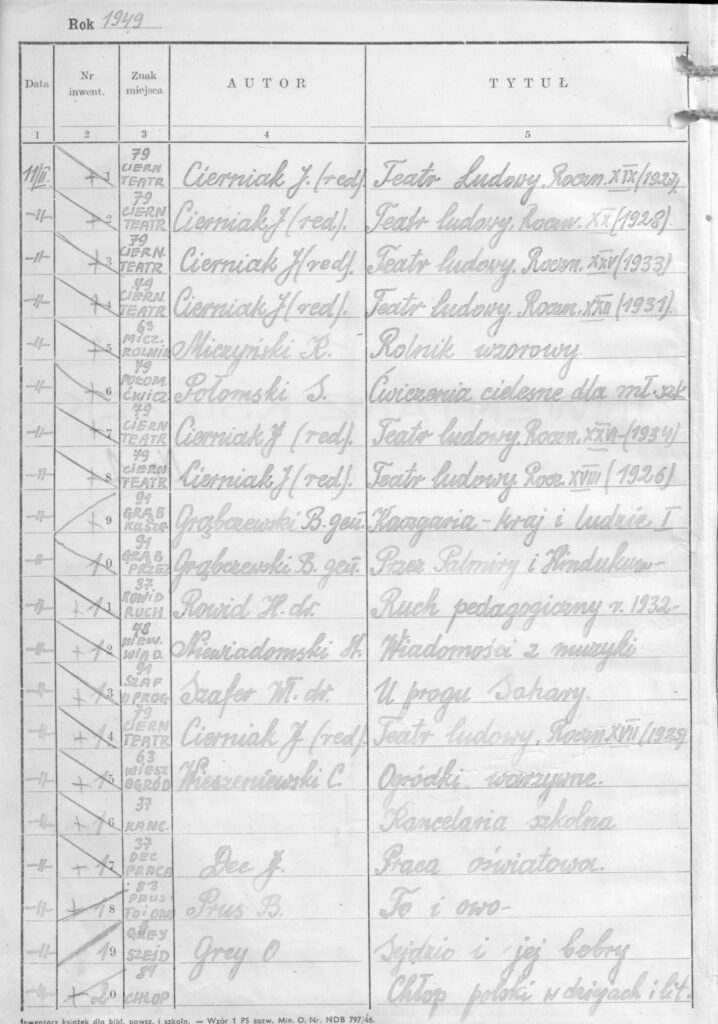 Rok 1949
Data Nr inwent. Znak miejsca AUTOR TYTUŁ
1 2 3 4 5
11/II. + 1 79 CIERN TEATR Cierniak J. (red) Teatr Ludowy. Roczn. XIX (1927)
-"- + 2 79 CIERN TEATR Cierniak J (red). Teatr ludowy. Roczn. XX (1928)
-"- + 3 79 CIERN. TEATR Cierniak J (red). Teatr ludowy. Roczn. XXV (1933)
-"- + 4 79 CIERN TEATR Cierniak J (red). Teatr ludowy. Roczn. (1931).
-"- + 5 63 MICZ. ROLNIK Miczyński K. Rolnik wzorowy
-"- + 6 79 POŁOM ĆWICZ Połomski S. Ćwiczenia cielesne dla mł. szk
-"- + 7 79 CIERN TEATR Cierniak J (red). Teatr ludowy. Roczn. XXVI (1934)
-"- + 8 79 CIERN TEATR Cierniak J (red). Teatr ludowy. Rocz. XVIII (1926)
-"- + 9 91 GRĄB KASZG Grąbczewski B. gen. Kaszgaria - kraj i ludzie I
-"- 10 91 GRĄB PRZEZ Grąbczewski B. gen. Przez Palmiry i Hindukusz-
-"- + 11 37 ROWID RUCH Rowid H. dr. Ruch pedagogiczny r. 1932-
-"- + 12 78 NIEW. WIAD. Niewiadomski St. Wiadomości z muzyki
-"- + 13 91 SZAF UPROG Szafer Wł. dr. U progu Sahary.
-"- + 14 79 CIERN TEATR Cierniak J (red). Teatr ludowy. Roczn XVII (1925)
-"- + 15 63 WIESZ OGRÓD Wieszeniewski C. Ogródki warzywne.
-"- + 16 37 KANC. Kancelaria szkolna
-"- + 17 37 DEC PRACA Dec J. Praca oświatowa.
-"- + 18 83 PRUS TO i OWO Prus B. To i owo-
-"- 19 GREY SZEJD Grey O Sejdzio i jej bobry
-"- + 20 CHŁOP Chłop polski w dziejach i lit.
Inwentarz książek dla bibl. powsz. i szkoln. — Wzór 1 PS zatw. Min. O. Nr. NDB 797/46.